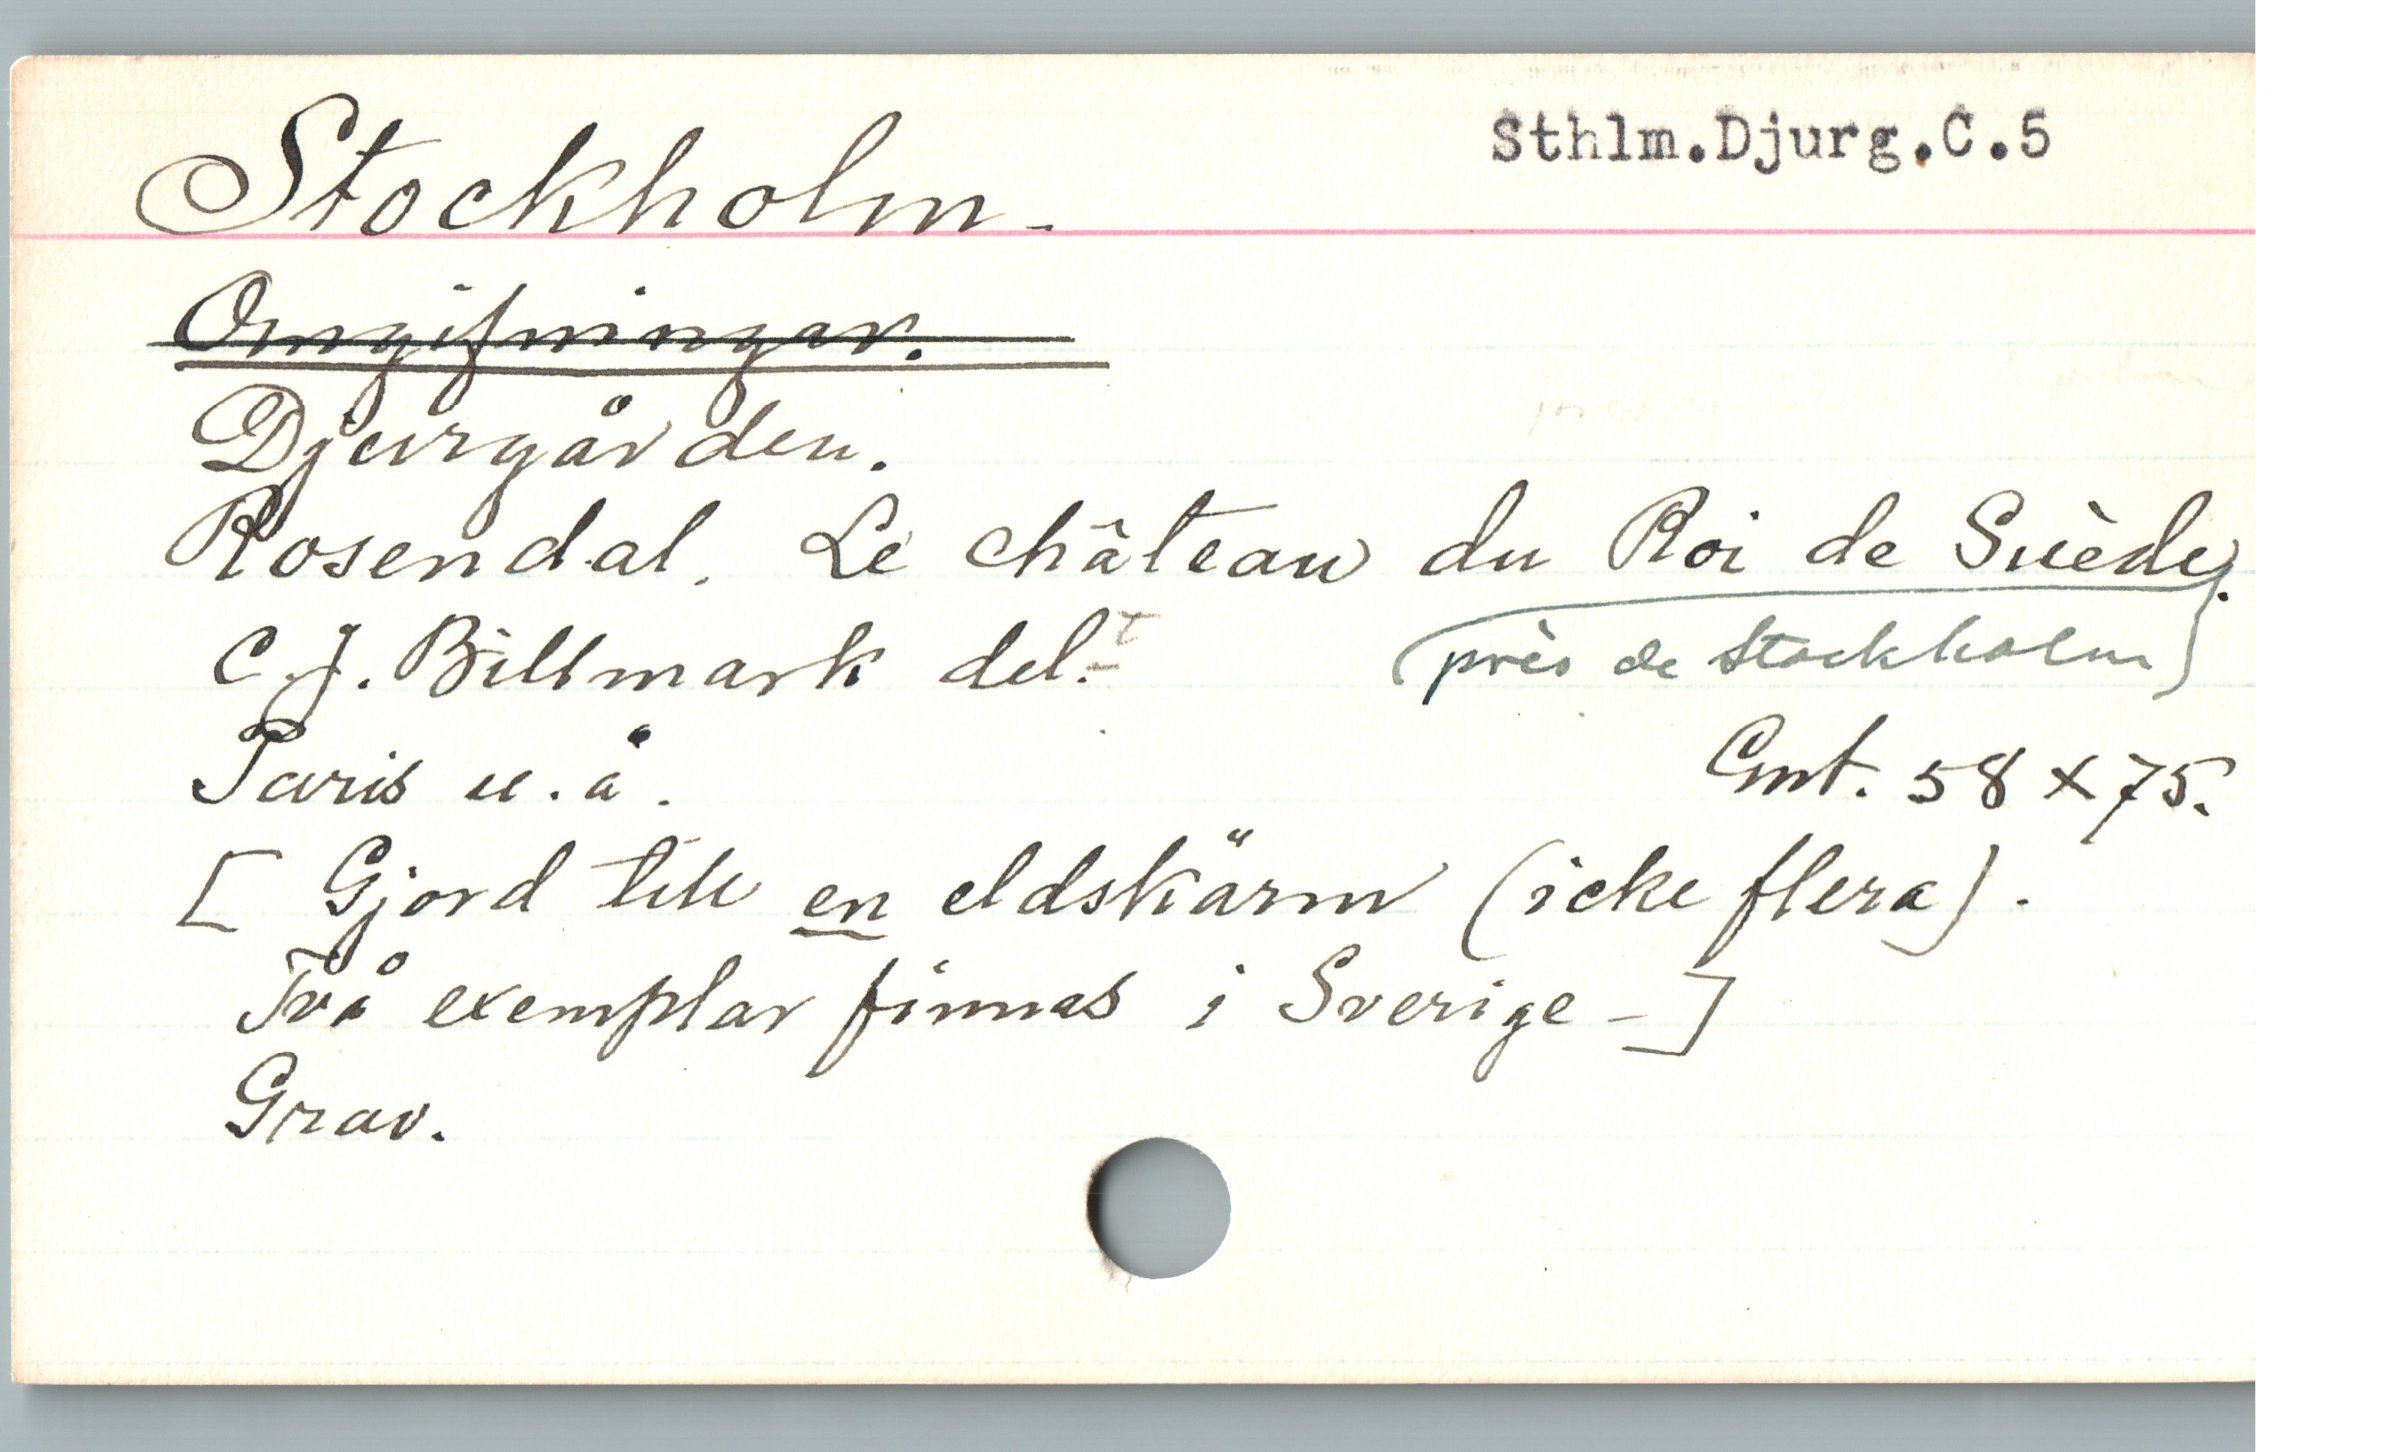 Sthlm.Djurg.C.5
Stockholm.
Omgifningar.
Djurgården.
Rosendal. Le château du Roi de Suède.
(près de Stockholm)
C. J. Billmark del.t
Paris u.å.
Gmt. 58 x 75.
[ Gjord till en eldskärm (icke flera).
Två exemplar finnas i Sverige - ]
Grav.